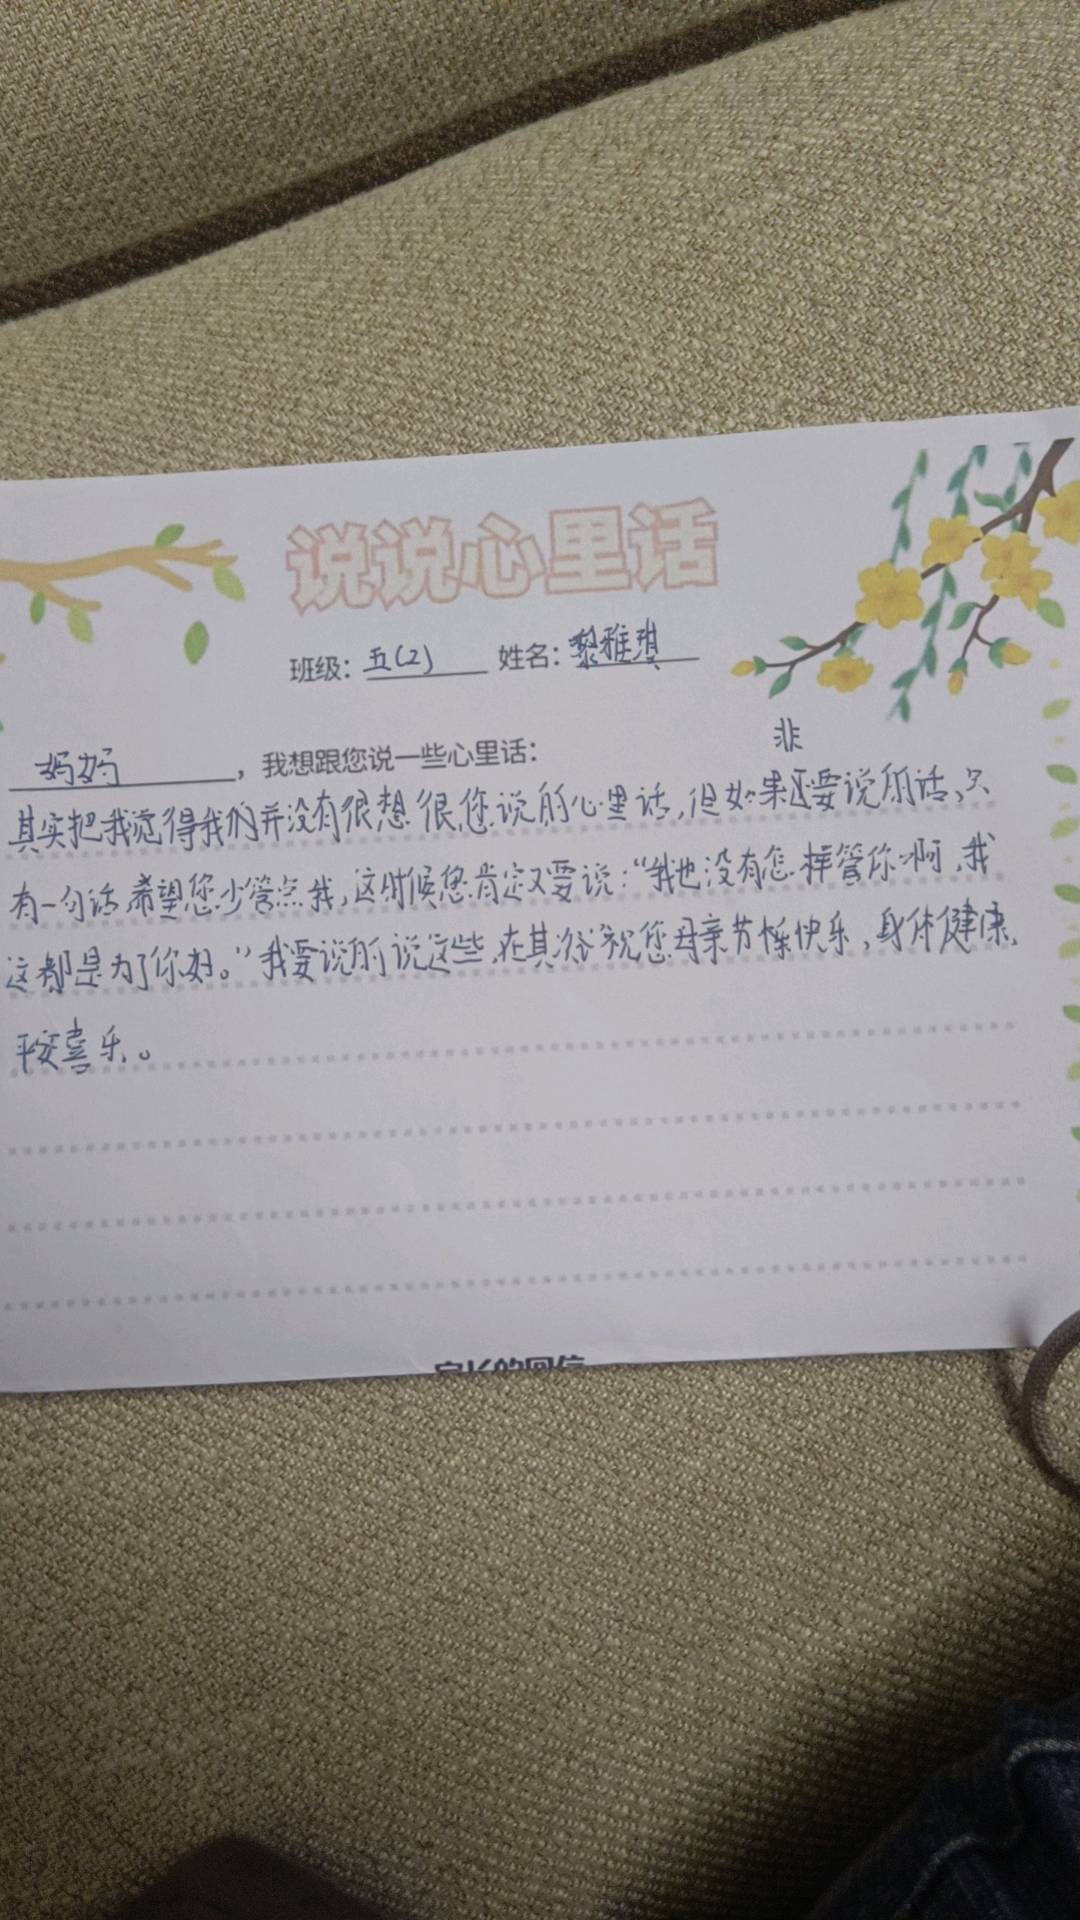 说说心里话
班级：五(2) 姓名：黎雅琪
妈妈，我想跟您说一些心里话：
非
其实把我觉得我们并没有很想很您说的心里话，但如果还要说的话，只
有一句话希望您少管点我，这时候您肯定又要说：“我也没有怎样管你啊，我
这都是为了你好。”我要说的说这些，在其祝您母亲节快乐，身体健康，
平安喜乐。
家长的回信